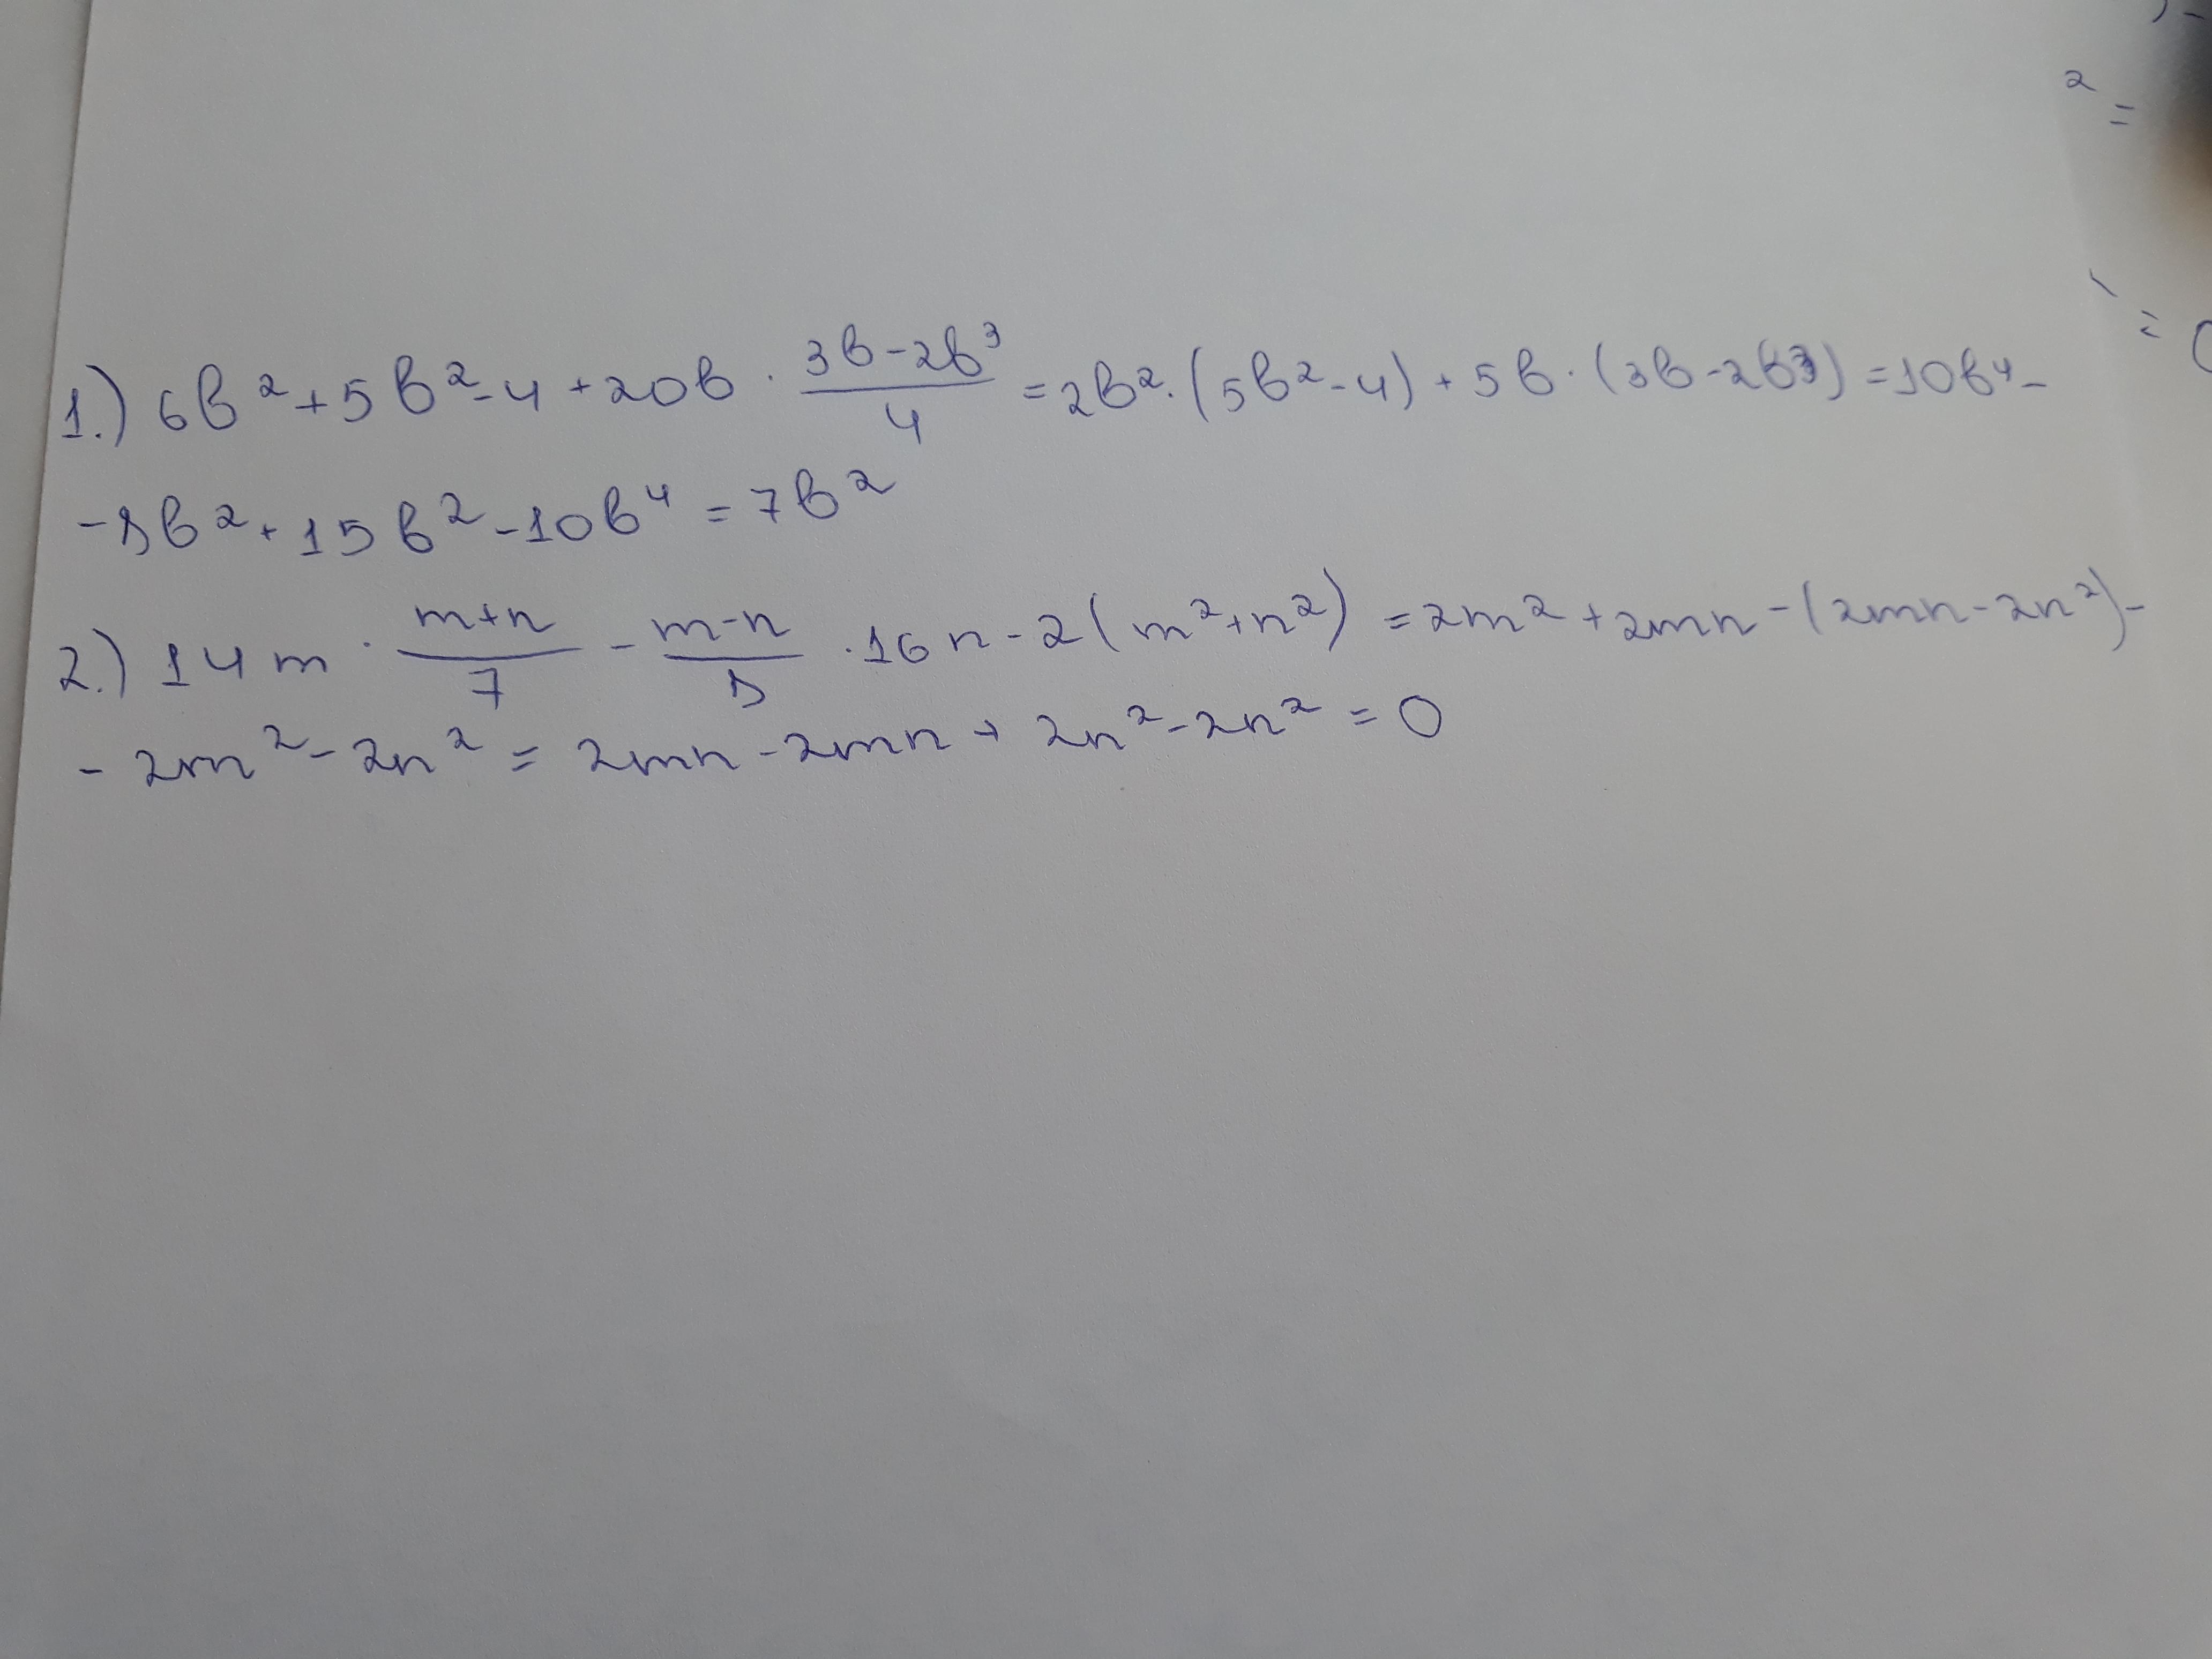 2 =
= (
1.) 6b² + 5b² - 4 + 20b · (3b - 2b³)/4 = 2b² · (5b² - 4) + 5b · (3b - 2b³) = 10b⁴ -
- 8b² + 15b² - 10b⁴ = 7b²
2.) 14m · (m+n)/7 - (m-n)/8 · 16n - 2(m² + n²) = 2m² + 2mn - (2mn - 2n²) -
- 2m² - 2n² = 2mn - 2mn + 2n² - 2n² = 0